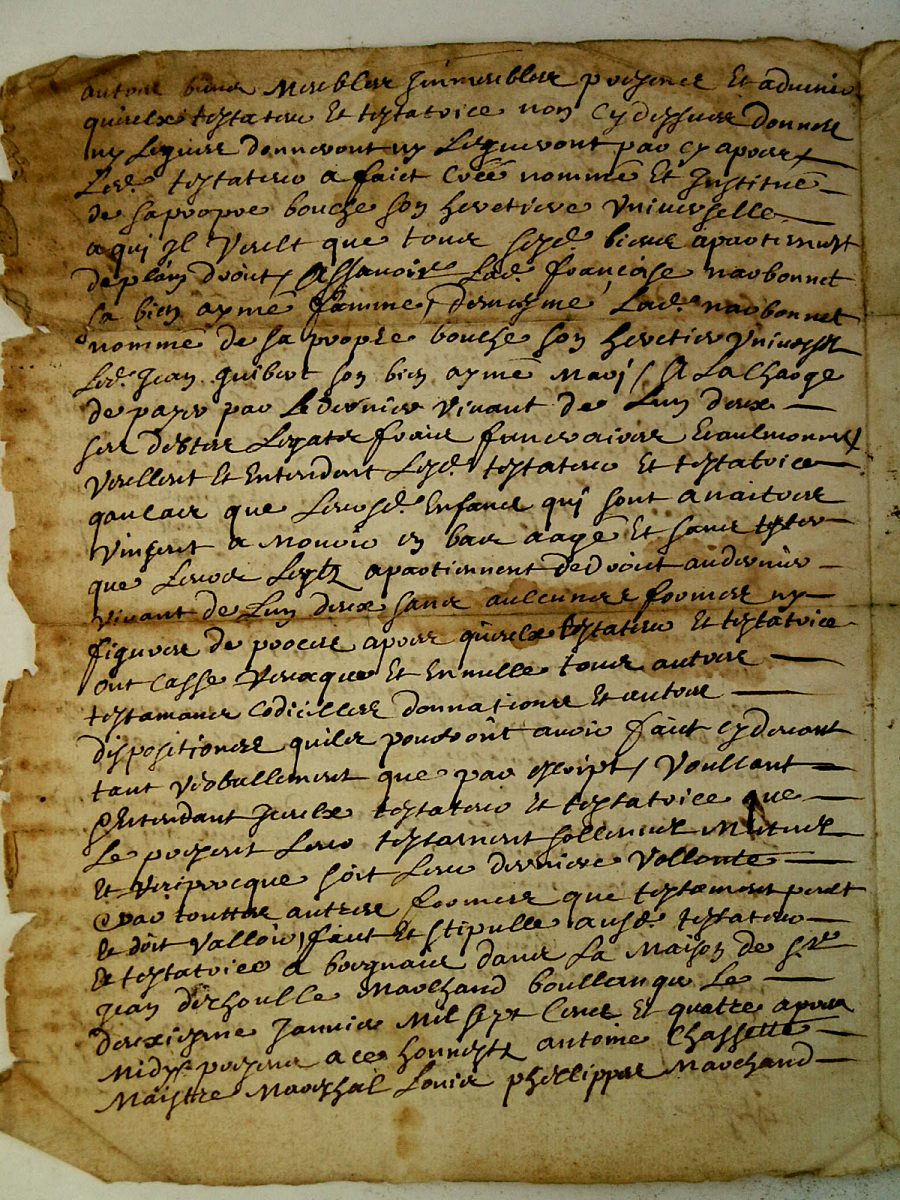 autres biens Meubles Jmmeubles presens Et advenir
quiceulx testateur Et testatrice non Cy dessus donnes
ny Legues donneront ny Legueront par cy apres
Led. testateur a faict Creé nommé Et Jnstitué
de sa propre bouche son heretiere Vniverselle
a qui Jl Veult que tous sesd. biens apartiennent
de plain droict / Assauoir Lad. francoise narbonnet
sa bien aymée famme, de mesme Lad. narbonnet
nomme de sa propre bouche son heretier Vniversel
Led. Jean guibert son bien aymé Mary / A La Charge
de payer par Le dernier Vivant de Lun deux
ses debtes Legats frais funeraires Et aulmones
Veullent Et Entendent Lesd. testateur et testatrice
qau cas que Leursd. Enfans qui sont a naitre
Vinsent a Mourir en bas aagé Et sans tester
que Leurs Legtz apartiennent de Droict au dernier
vivant de Lun deux sans aulcunes formes ny
figures de proces apres quiceulx testateur Et testatrice
ont Cassé Revoqué Et Ennullé tous autres
testamans Codicilles donnations Et autres
dispositiones quils pouroint avoir faict cy devant
tant Verballement que par escript / Voullant
Et Entendant Jceulx testateur Et testatrice que
Le present Leur testament sollennel Mutuel
Et Reciprocque soit Leur derniere Vollonté
Et par touttes autres formes que testament peult
Et doit Valloir, faict Et stipullé ausd. testateur
Et testatrice a dans La Maison de sr
Jean Marchand boullanger Le
deuxiesme Janvier Mil sept Cens Et quatre apres
Midy presens a ce honneste antoine Chassette
Maistre Mareschal Louis phellippes Marchand